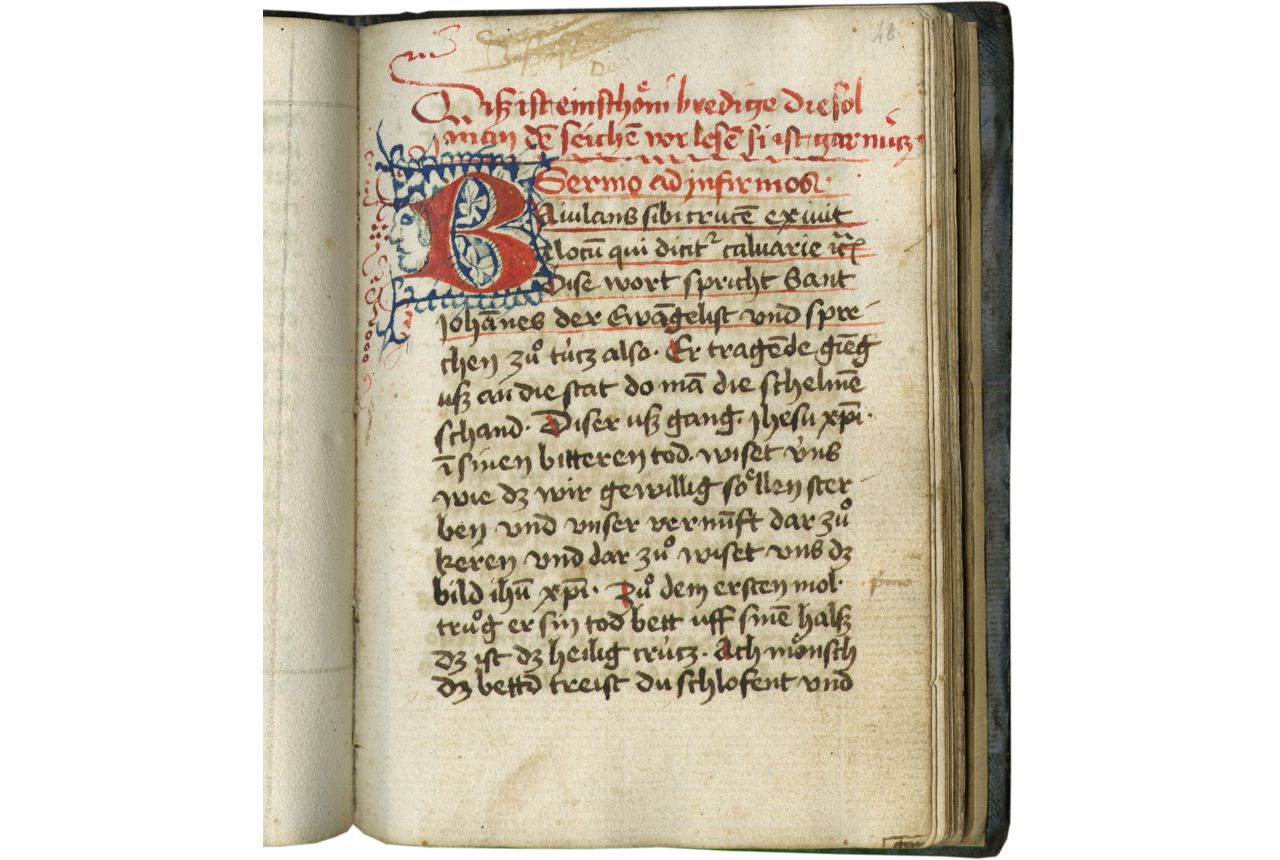 48
Diß ist ein schoͤni bredige die sol
man dē seichē vor lesē si ist gar nücz
Sermo ad jnfirmos
Baiulans sibi crucē exiuit
locū qui dicit᷑ caluarie
Dise wort spricht Sant
Johānes der Ewāgelist vnd spre-
chen zuͦ tücz also. Er tragēde giēg
uß an die stat do mā die schelmē
schand. Diser uß gang. Jhesu xp̄i.
ī sinen bitteren tod. wiset vns
wie dz wir gewillig soͤllen ster
ben vnd vnser vernūft dar zuͦ
keren vnd dar zuͦ wiset vns dz
bild ihū xp̄i. Zuͦ dem ersten mol
truͦg er sin tod bett uff sinē halß
dz ist dz heilig crücz. Ach moͤnsch
dz bettd treist du schlofent vnd